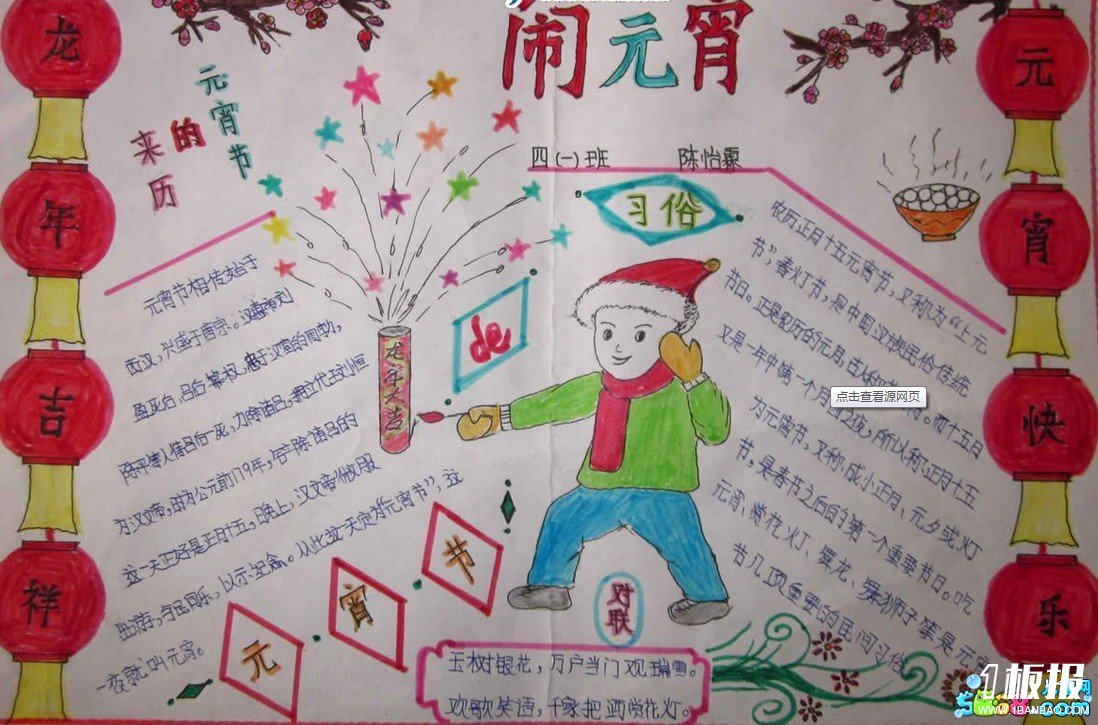 闹元宵
四(一)班 陈怡霖
龙年吉祥
元宵快乐
元宵节
的
来历
元宵节相传始于
西汉,兴盛于唐宗。汉惠帝刘
盈死后,吕后篡权,
陈平等人
为汉文帝,时为公元前179年,
这一天正好是正月十五,晚上,汉文帝
出游,与民同乐,以示纪念。从此这一天定为“元宵节”,这
一夜就叫元宵。
龙年大吉
de
元宵节
习俗
农历正月十五元宵节,又称为“上元
节”,春灯节,是中国汉族民俗传统
节日。正月是农历的元月,
而十五日
又是一年中第一个月
之夜,所以称正月十五
为元宵节,又称成小正月、元夕或灯
节,是春节之后的第一个重要节日。吃
元宵、赏花灯、舞龙、舞狮子等是元宵
节几项重要的民间习俗
点击查看源网页
对联
玉树银花,万户当门观瑞雪。
欢歌笑语,千家把酒赏花灯。
1板报
WWW.1BANBAO.COM